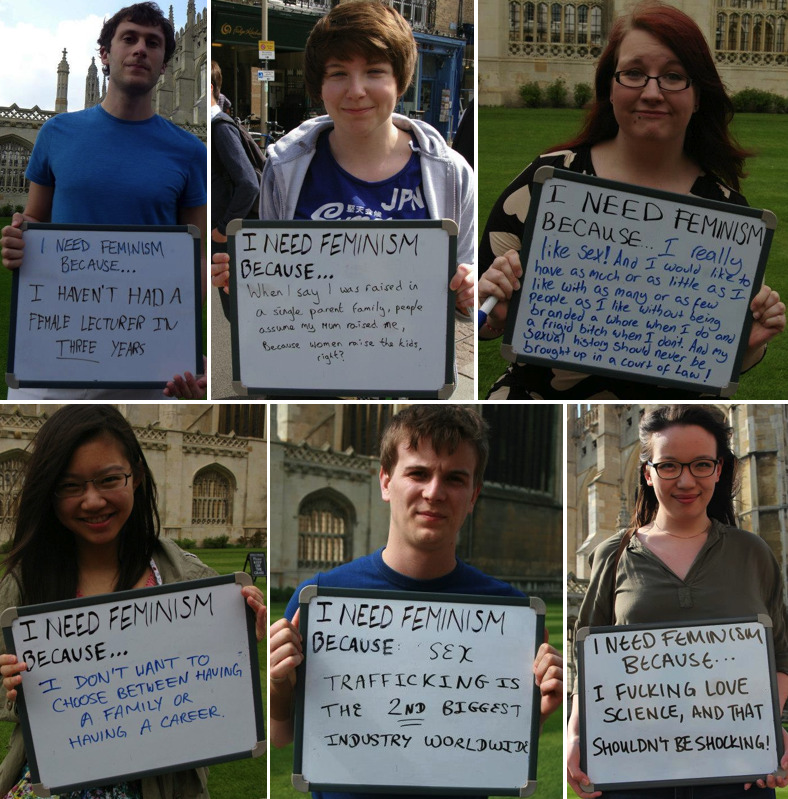 I NEED FEMINISM
BECAUSE...
I HAVEN'T HAD A
FEMALE LECTURER IN
THREE YEARS
JPN
I NEED FEMINISM
BECAUSE...
When I say I was raised in
a single parent family, people
assume my Mum raised me,
Because women raise the kids,
right?
I NEED FEMINISM
BECAUSE... I really
like sex! And I would like to
have as much or as little as I
like with as many or as few
people as I like without being
branded a whore when I do and
a frigid bitch when I don't. And my
sexual history should never be
brought up in a court of Law!
I NEED FEMINISM
BECAUSE...
I DON'T WANT TO
CHOOSE BETWEEN HAVING
A FAMILY OR
HAVING A CAREER.
I NEED FEMINISM
BECAUSE: SEX
TRAFFICKING IS
THE 2ND BIGGEST
INDUSTRY WORLDWIDE
I NEED FEMINISM
BECAUSE...
I FUCKING LOVE
SCIENCE, AND THAT
SHOULDN'T BE SHOCKING!